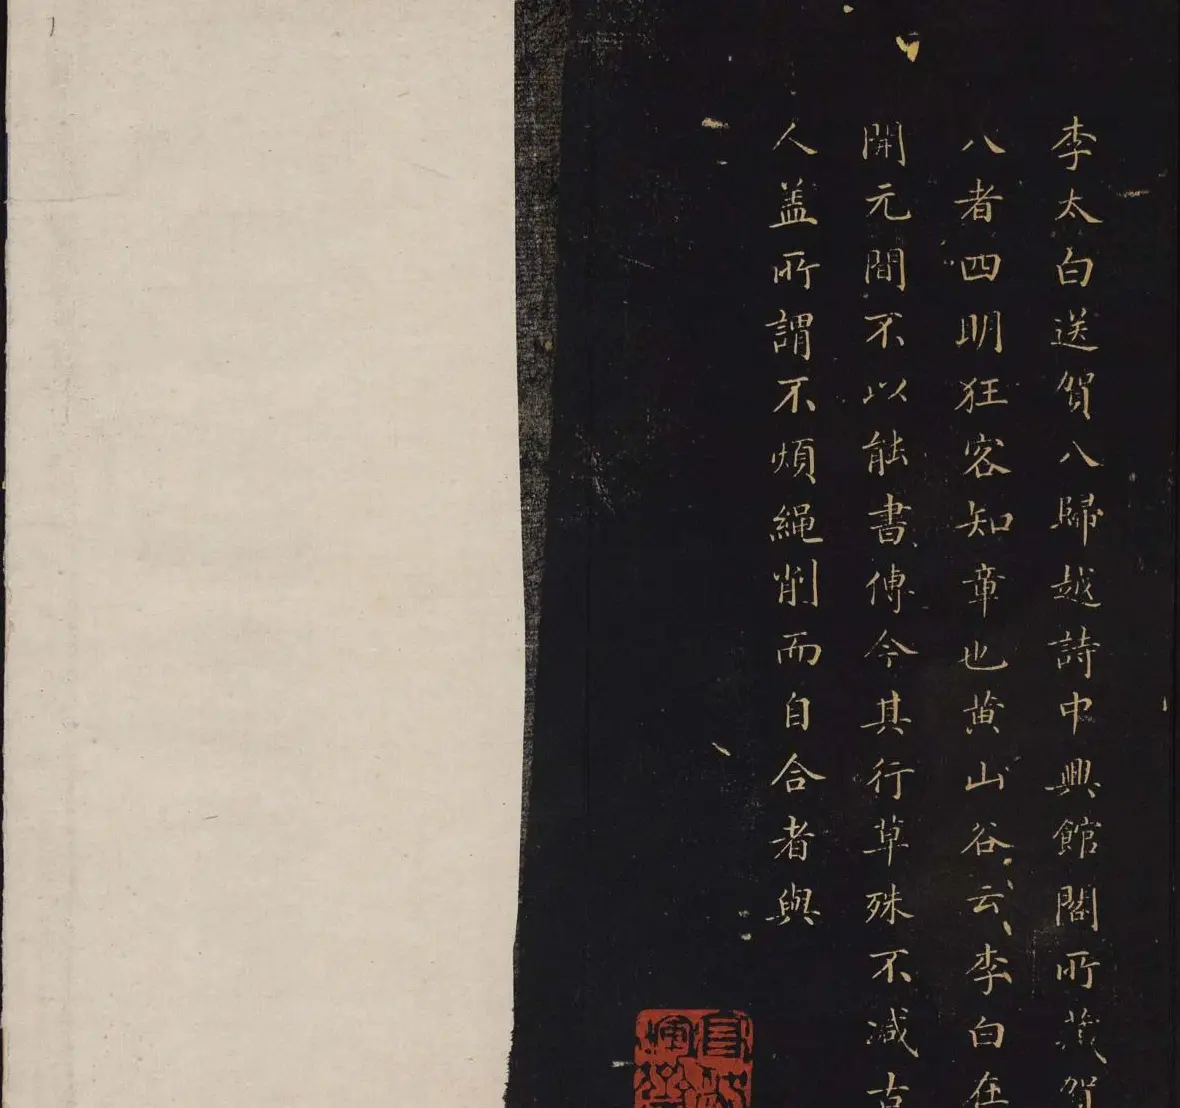 李太白送賀八歸越詩中興館閣所藏賀
八者四明狂客知章也黄山谷云李白在
開元間不以能書傳今其行草殊不减古
人盖所謂不煩繩削而自合者與